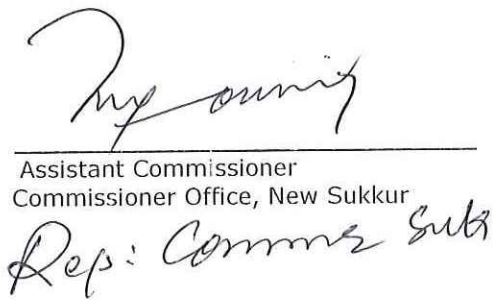 Assistant Commissioner
Commissioner Office, New Sukkur
Rep: